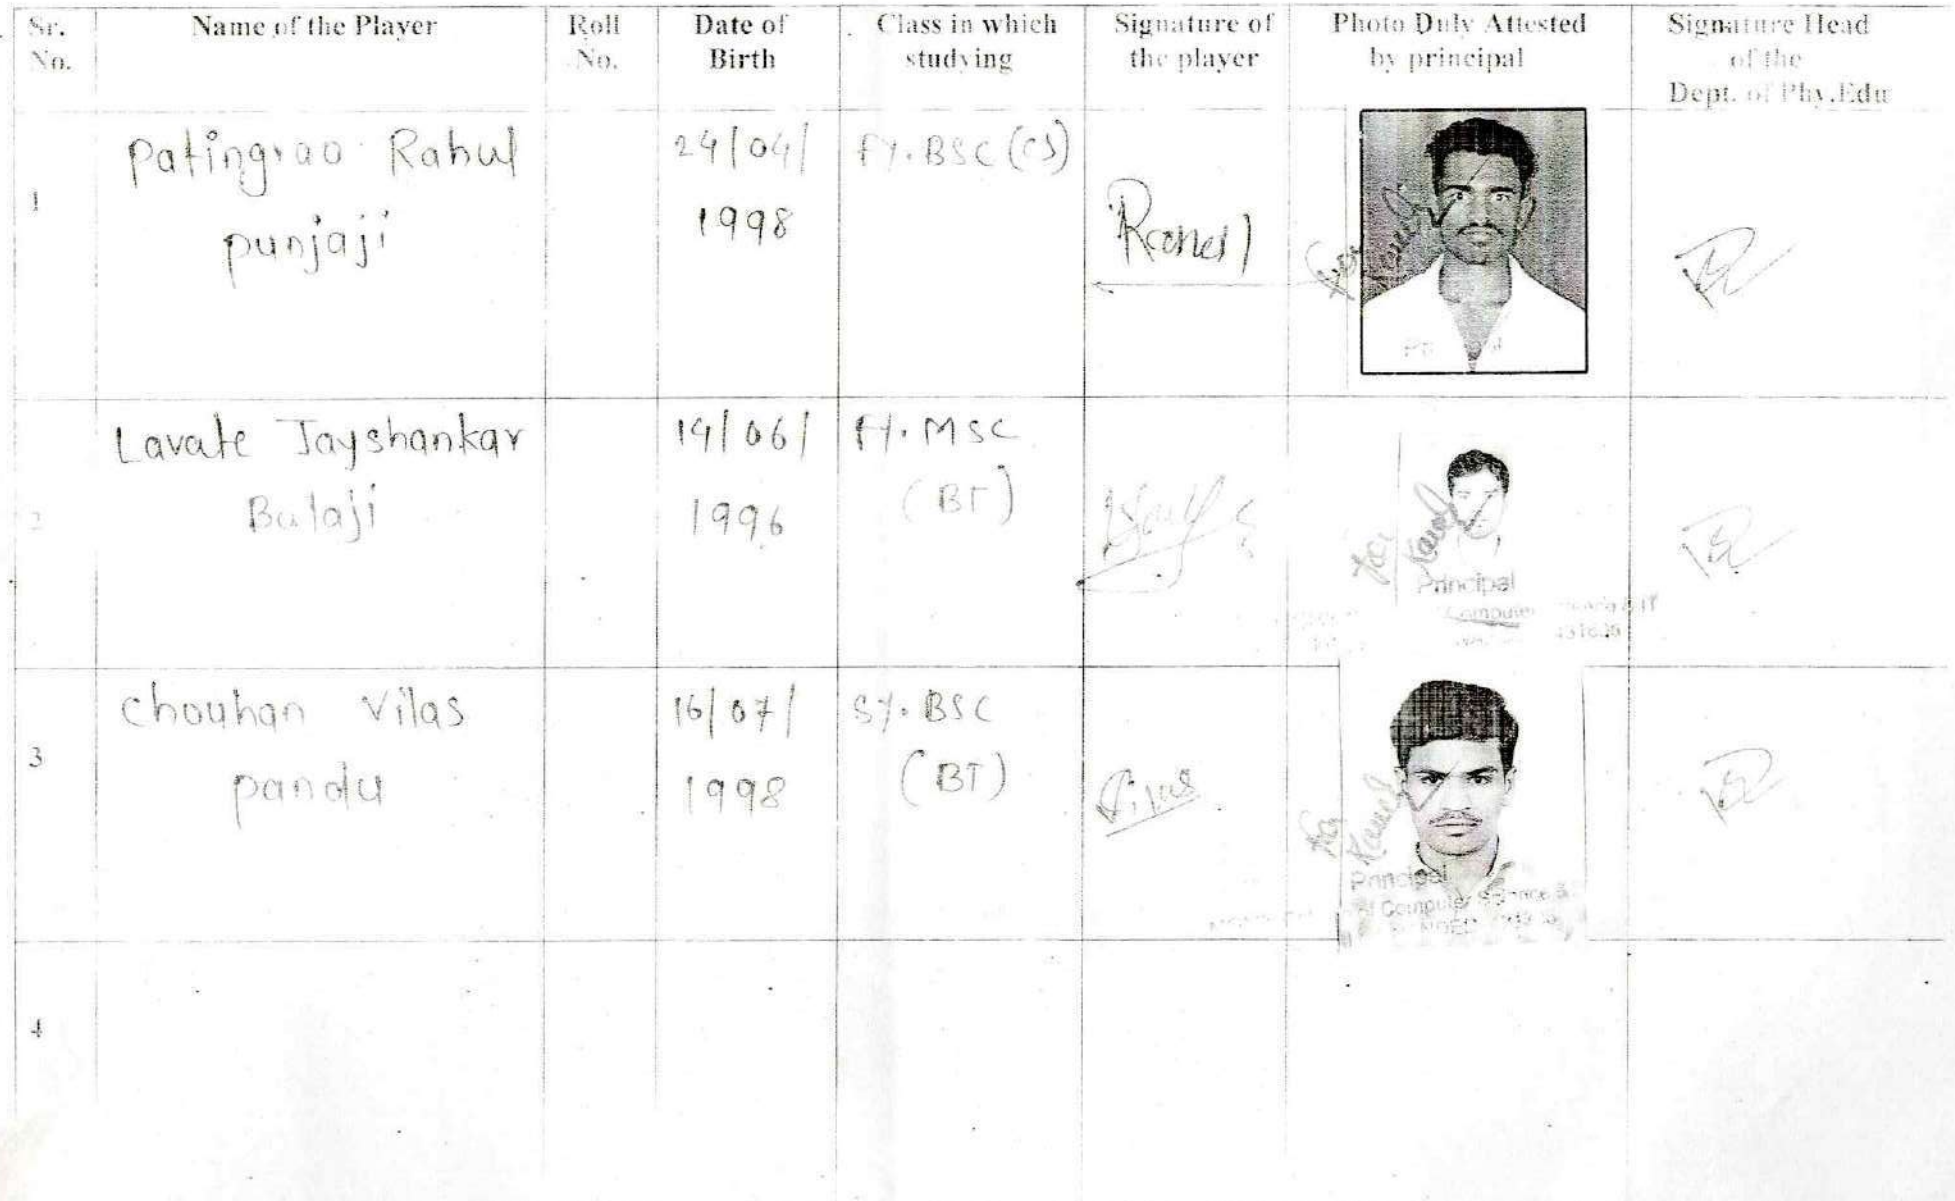 Sr. No.
Name of the Player
Roll No.
Date of Birth
Class in which studying
Signature of the player
Photo Duly Attested by principal
Signature Head of the Dept. of Phy.Edu
1
Patingrao Rahul
punjaji
24/04/
1998
FY.BSC (CS)
2
Lavate Jayshankar
Balaji
14/06/
1996
FY.MSC
(BT)
Principal
Computer
3
Chouhan Vilas
pandu
16/07/
1998
SY.BSC
(BT)
Vilas
Principal
of Computer Science &
4